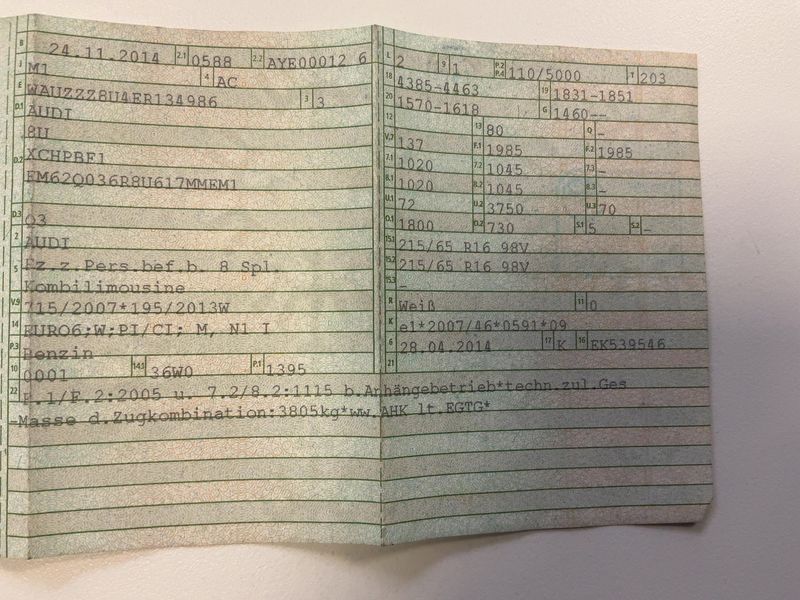 B 24.11.2014 2.1 0588 2.2 AYE00012 6
J M1 4 AC
E WAUZZZ8U4ER134986 3 3
D.1 AUDI
8U
D.2 XCHPBF1
FM62Q036R8U617MMEM1
D.3 Q3
2 AUDI
5 Fz.z.Pers.bef.b. 8 Spl.
Kombilimousine
V.9 715/2007*195/2013W
14 EURO6;W;PI/CI; M, N1 I
P.3 Benzin
10 0001 14.1 36W0 P.1 1395
L 2 9 1 P.2 P.4 110/5000 T 203
18 4385-4463 19 1831-1851
20 1570-1618 G 1460--
12 13 80 Q -
V.7 137 F.1 1985 F.2 1985
7.1 1020 7.2 1045 7.3 -
8.1 1020 8.2 1045 8.3 -
U.1 72 U.2 3750 U.3 70
O.1 1800 O.2 730 S.1 5 S.2 -
15.1 215/65 R16 98V
15.2 215/65 R16 98V
15.3 -
R Weiß 11 0
K e1*2007/46*0591*09
6 28.04.2014 17 K 16 EK539546
21
22 F.1/F.2:2005 u. 7.2/8.2:1115 b.Anhängebetrieb*techn.zul.Ges
-Masse d.Zugkombination:3805kg*ww.AHK lt.EGTG*